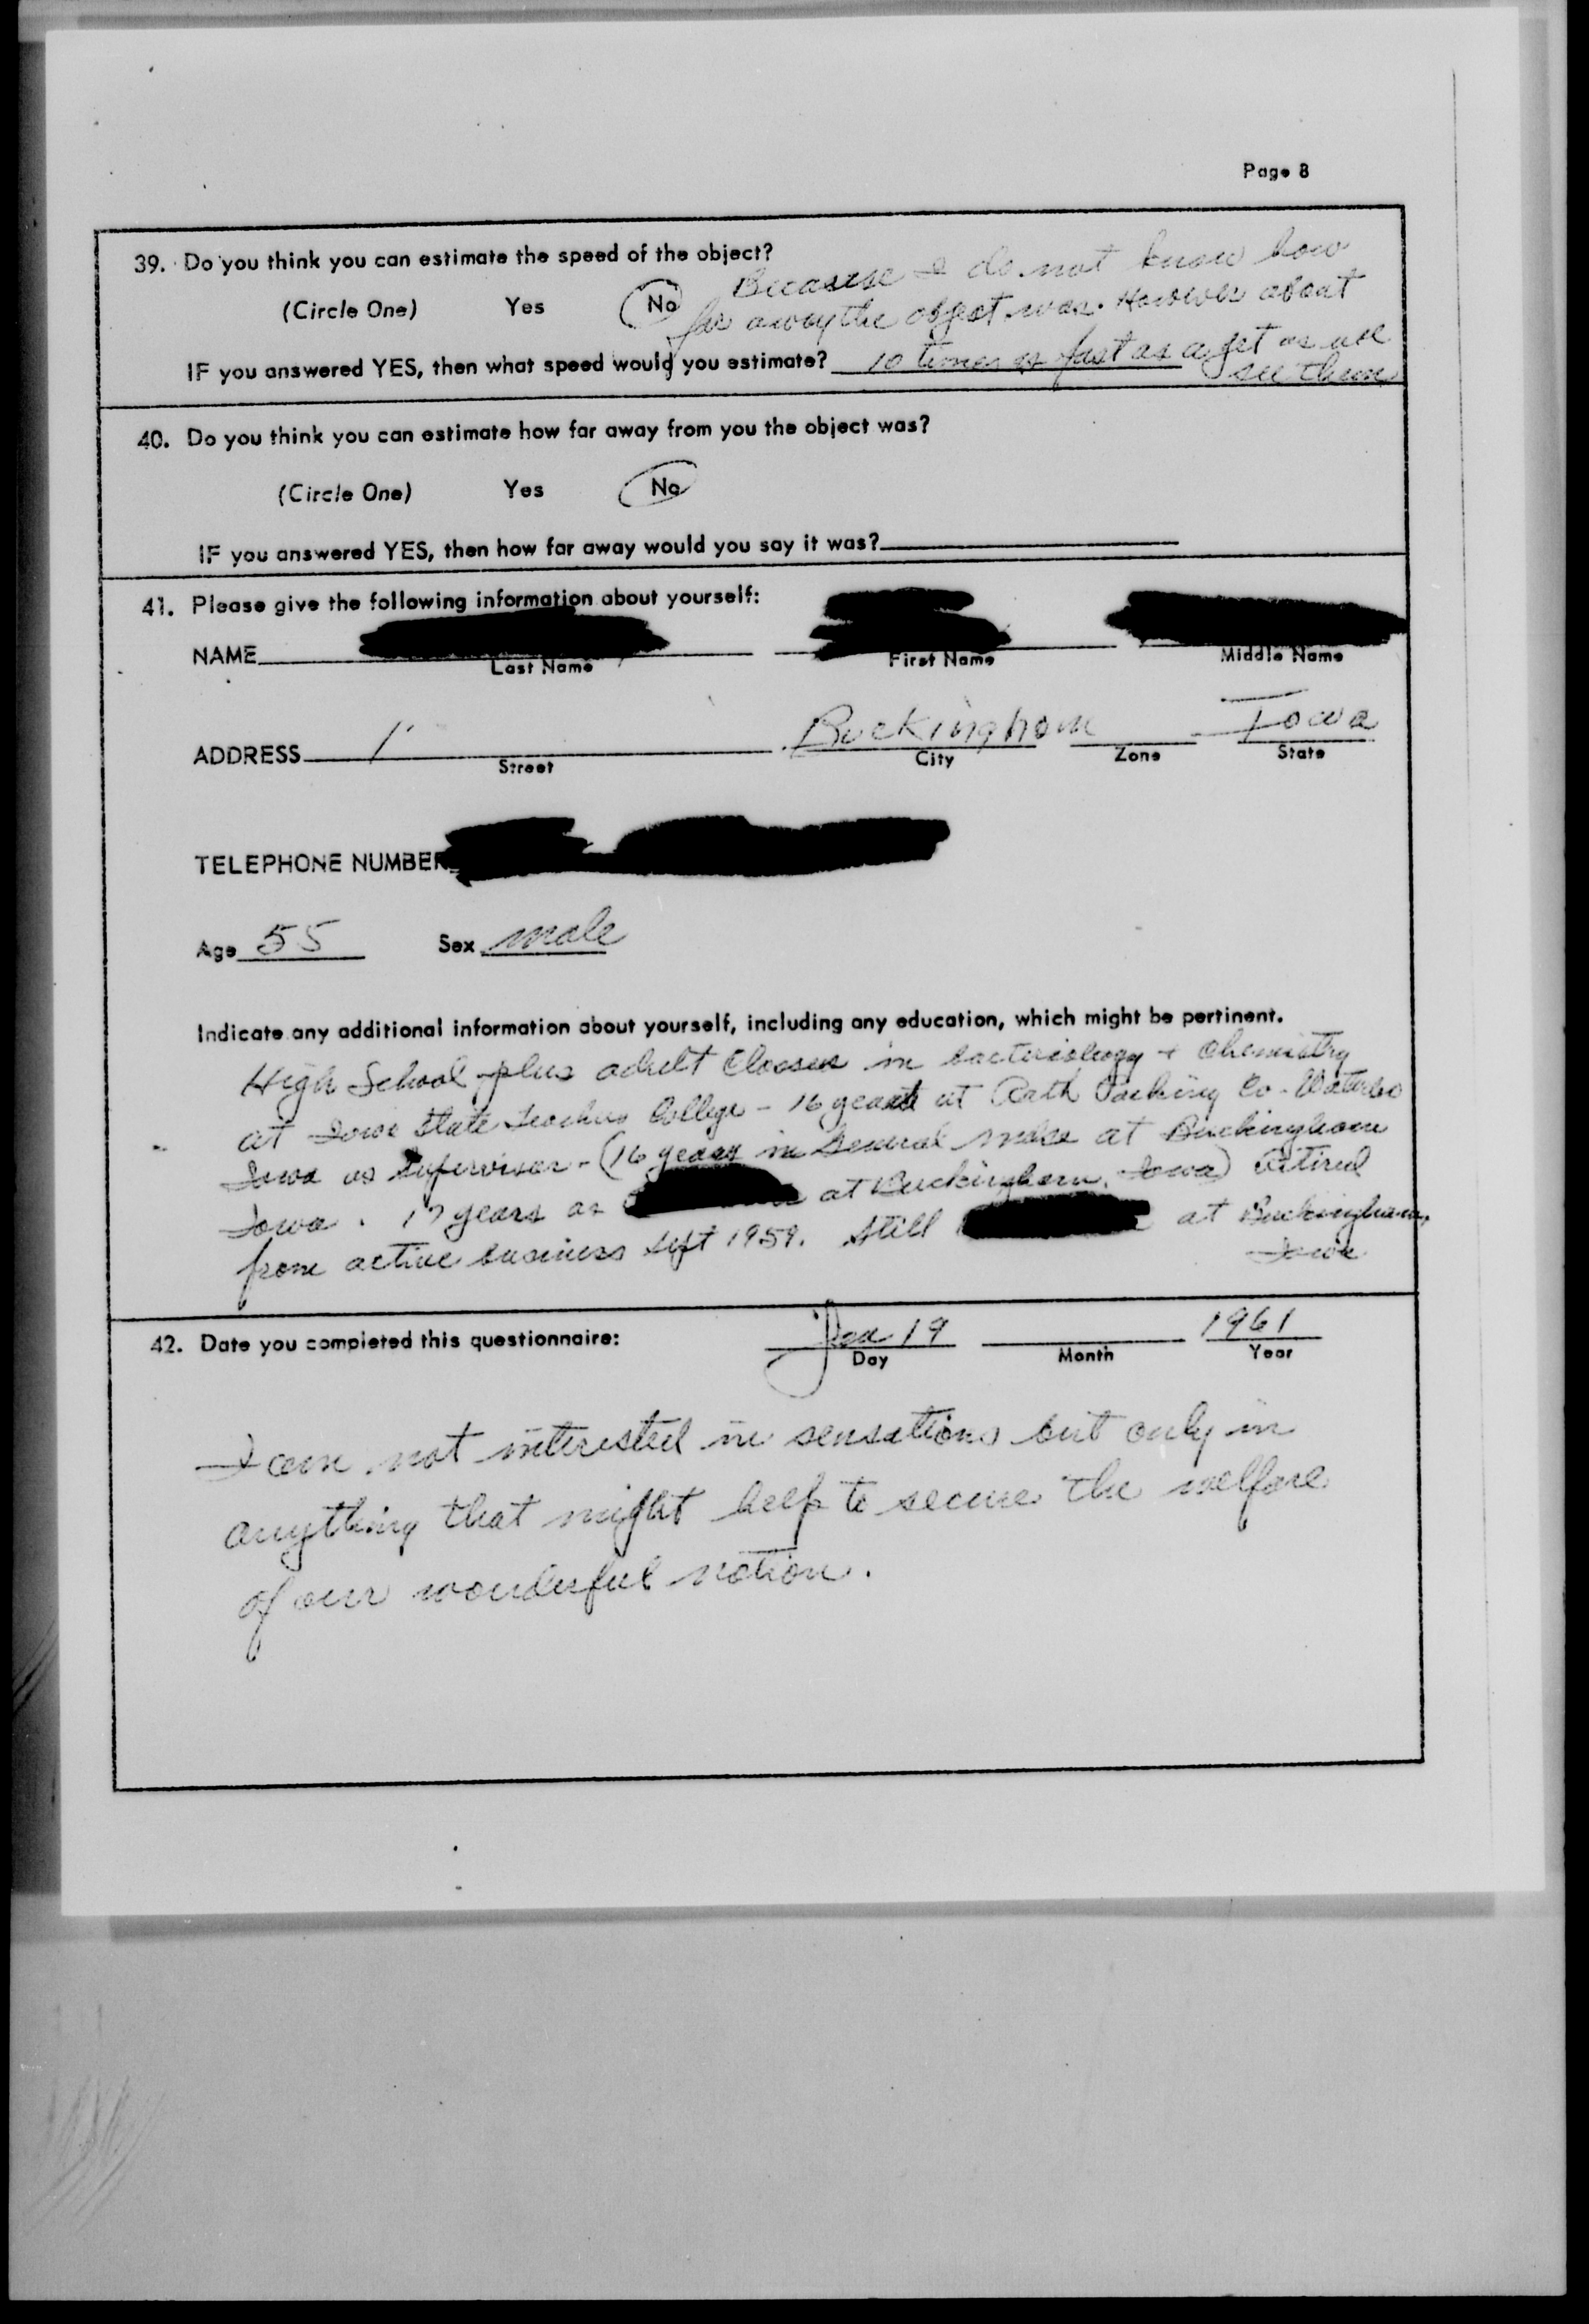 Page 8
39. Do you think you can estimate the speed of the object?
(Circle One) Yes No
Because I do not know how
far away the object was. However about
IF you answered YES, then what speed would you estimate? 10 times as fast as a jet as we
see them
40. Do you think you can estimate how far away from you the object was?
(Circle One) Yes No
IF you answered YES, then how far away would you say it was?
41. Please give the following information about yourself:
NAME
Last Name First Name Middle Name
ADDRESS 1 Buckingham Iowa
Street City Zone State
TELEPHONE NUMBER
Age 55 Sex male
Indicate any additional information about yourself, including any education, which might be pertinent.
High School plus adult Classes in bacteriology + chemistry
at Iowa State Teachers College - 16 years at Rath Packing Co - Waterloo
Iowa as supervisor - (16 years in General mdse at Buckingham
Iowa. 17 years as at Buckingham, Iowa) Retired
from active business Sept 1959. Still at Buckingham,
Iowa
42. Date you completed this questionnaire: Jan 19 1961
Day Month Year
I am not interested in sensations but only in
anything that might help to secure the welfare
of our wonderful nation.